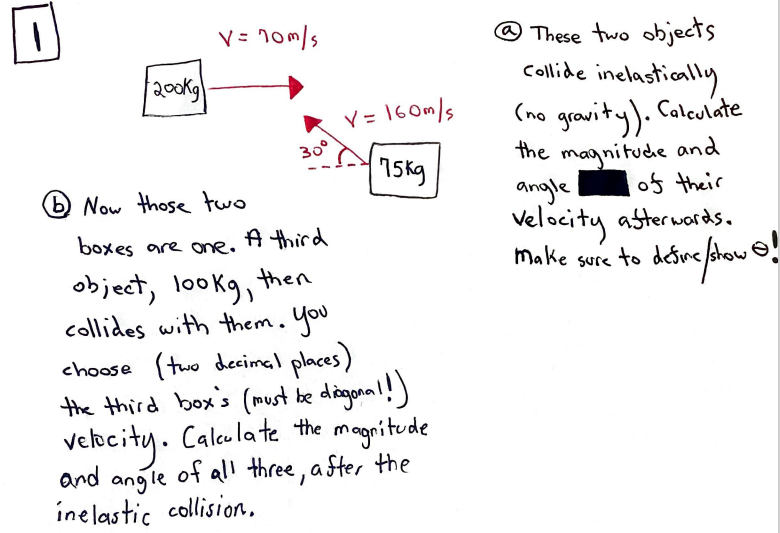 1
V = 70m/s
200Kg
V = 160m/s
30°
75Kg
ⓐ These two objects
collide inelastically
(no gravity). Calculate
the magnitude and
angle of their
velocity afterwards.
Make sure to define/show θ!
ⓑ Now those two
boxes are one. A third
object, 100Kg, then
collides with them. You
choose (two decimal places)
the third box's (must be diagonal!)
velocity. Calculate the magnitude
and angle of all three, after the
inelastic collision.